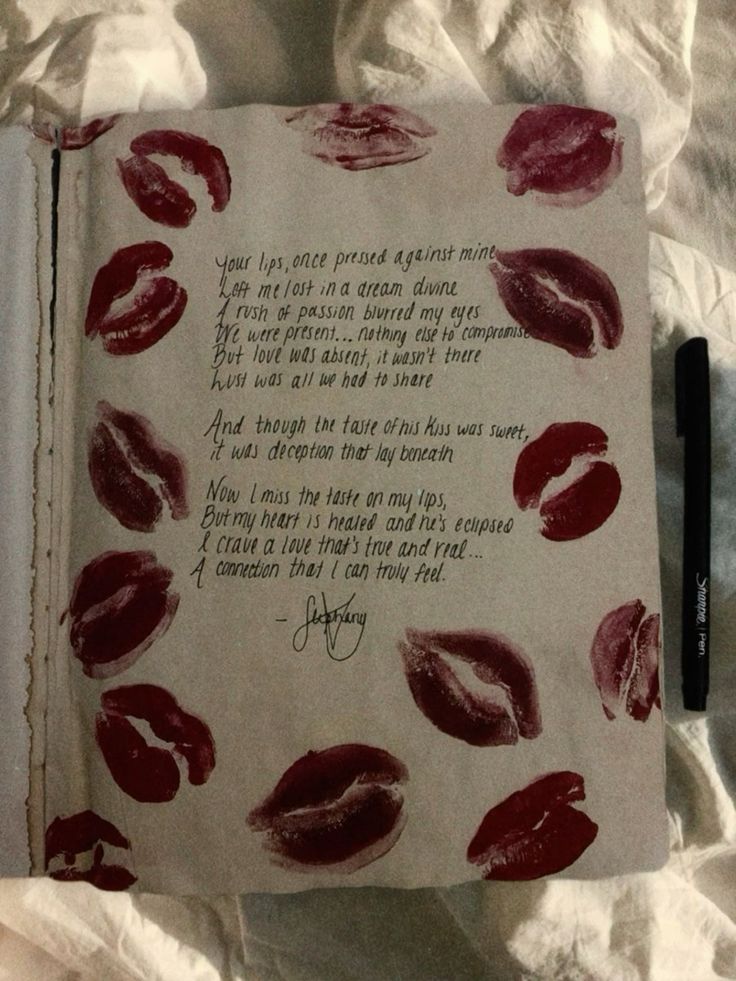 Your lips, once pressed against mine
Left me lost in a dream divine
A rush of passion blurred my eyes
We were present... nothing else to compromise
But love was absent, it wasn't there
Lust was all we had to share
And though the taste of his kiss was sweet,
it was deception that lay beneath
Now I miss the taste on my lips,
But my heart is healed and he's eclipsed
I crave a love that's true and real...
A connection that I can truly feel.
Sharpie | Pen.